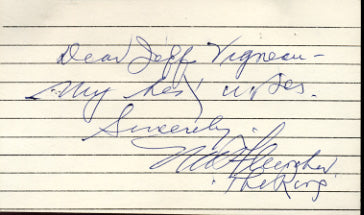 Dear Jeff Vigneau -
My best wishes.
Sincerely,
Nat Fleischer
The Ring